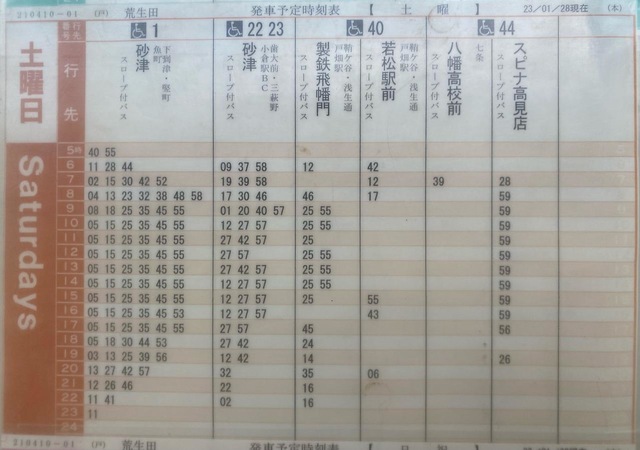 210410-01 (戸) 荒生田 発車予定時刻表 【 土 曜 】 23/01/28現在 (本)
行先番号 1 22 23 40 44
土曜日
行先
砂津 下到津・竪町 魚町 スロープ付バス
砂津 歯大前・三萩野 小倉駅BC スロープ付バス
製鉄飛幡門 鞘ケ谷・浅生通 戸畑駅 スロープ付バス
若松駅前 鞘ケ谷・浅生通 戸畑駅 スロープ付バス
八幡高校前 七条 スロープ付バス
スピナ高見店 スロープ付バス
Saturdays
5時 40 55
6 11 28 44 09 37 58 12 42
7 02 15 30 42 52 19 39 58 12 39 28
8 04 13 23 32 38 48 58 17 30 46 46 17 59
9 08 18 25 35 45 55 01 20 40 57 25 55 59
10 05 15 25 35 45 55 12 27 57 25 55 59
11 05 15 25 35 45 55 27 42 57 25 59
12 05 15 25 35 45 55 27 57 25 55 59
13 05 15 25 35 45 55 27 42 57 25 55 59
14 05 15 25 35 45 55 12 27 57 25 55 59
15 05 15 25 35 45 55 12 27 57 25 55 59
16 05 15 25 35 45 53 12 27 57 43 59
17 05 15 25 35 45 55 27 57 45 56
18 05 18 30 44 53 27 42 24
19 03 13 25 39 56 12 42 14 26
20 13 27 42 57 32 35 06
21 12 26 46 22 16
22 11 41 02 16
23 11
24
210410-01 (戸) 荒生田 発車予定時刻表